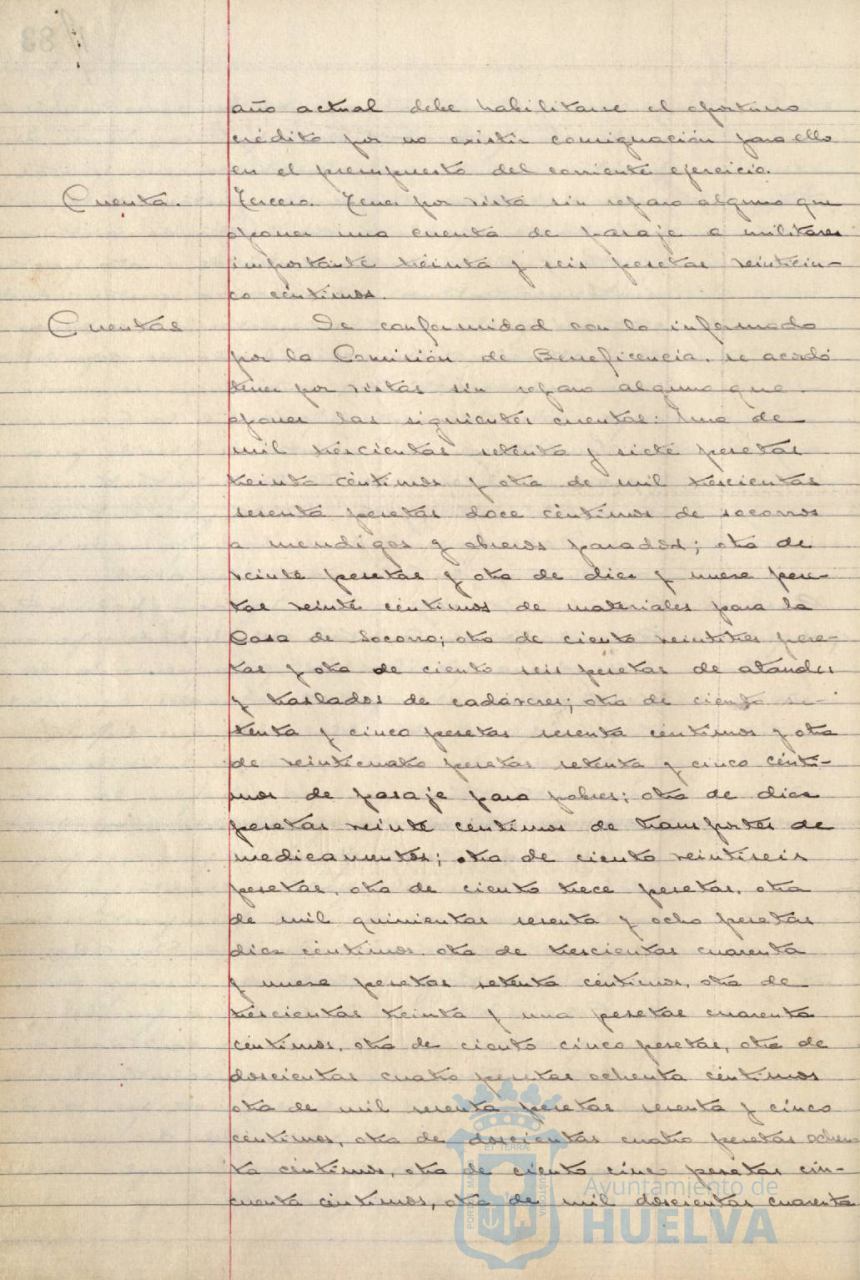 año actual debe habilitarse el oportuno
crédito por no existir consignación para ello
en el presupuesto del corriente ejercicio.
Cuenta. Tercero. Tener por vista sin reparo alguno que
oponer una cuenta de pasaje a militares
importante treinta y seis pesetas veinticin-
co céntimos.
Cuentas De conformidad con lo informado
por la Comisión de Beneficencia, se acordó
tener por vistas sin reparo alguno que
oponer las siguientes cuentas: Una de
mil trescientas setenta y siete pesetas
treinta céntimos y otra de mil trescientas
sesenta pesetas doce céntimos de socorros
a mendigos y obreros parados; otra de
veinte pesetas y otra de diez y nueve pese-
tas veinte céntimos de materiales para la
Casa de Socorro; otra de ciento veintitres pese-
tas y otra de ciento seis pesetas de ataudes
y traslados de cadáveres; otra de ciento se-
tenta y cinco pesetas sesenta céntimos y otra
de veinticuatro pesetas setenta y cinco cénti-
mos de pasaje para pobres; otra de diez
pesetas veinte céntimos de transportes de
medicamentos; otra de ciento veintiseis
pesetas, otra de ciento trece pesetas, otra
de mil quinientas sesenta y ocho pesetas
diez céntimos, otra de trescientas cuarenta
y nueve pesetas setenta céntimos, otra de
trescientas treinta y una pesetas cuarenta
céntimos, otra de ciento cinco pesetas, otra de
doscientas cuatro pesetas ochenta céntimos
otra de mil sesenta pesetas sesenta y cinco
céntimos, otra de doscientas cuatro pesetas ochen
ta céntimos, otra de ciento cinco pesetas cin-
cuenta céntimos, otra de mil doscientas cuarenta
Ayuntamiento de
HUELVA